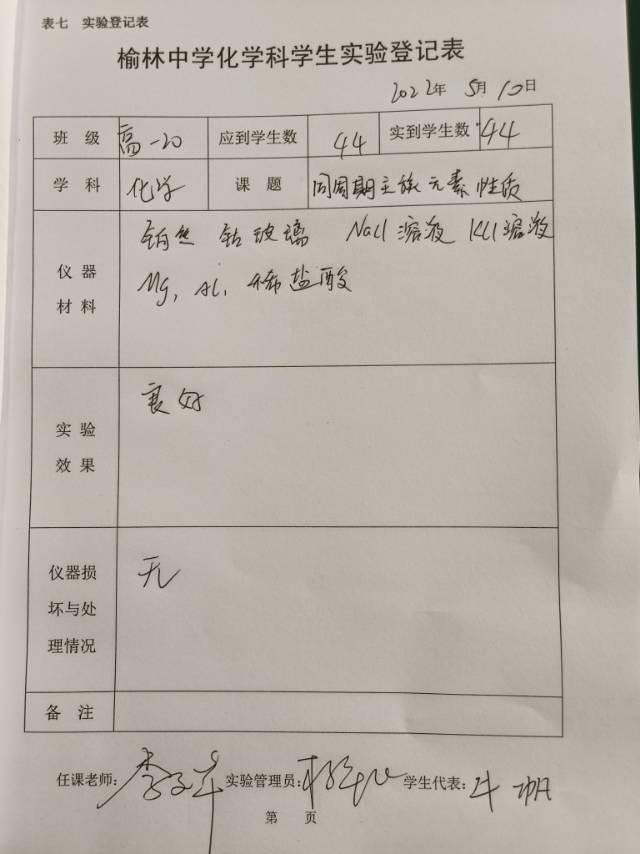 表七 实验登记表
榆林中学化学科学生实验登记表
2022年 5月 10日
班 级 高一20 应到学生数 44 实到学生数 44
学 科 化学 课 题 同周期主族元素性质
仪 器 材 料 铂丝 钴玻璃 NaCl 溶液 KCl 溶液
Mg, Al, 稀盐酸
实 验 效 果 良好
仪器损坏与处理情况 无
备 注
任课老师: 实验管理员: 学生代表: 牛帆
第 页